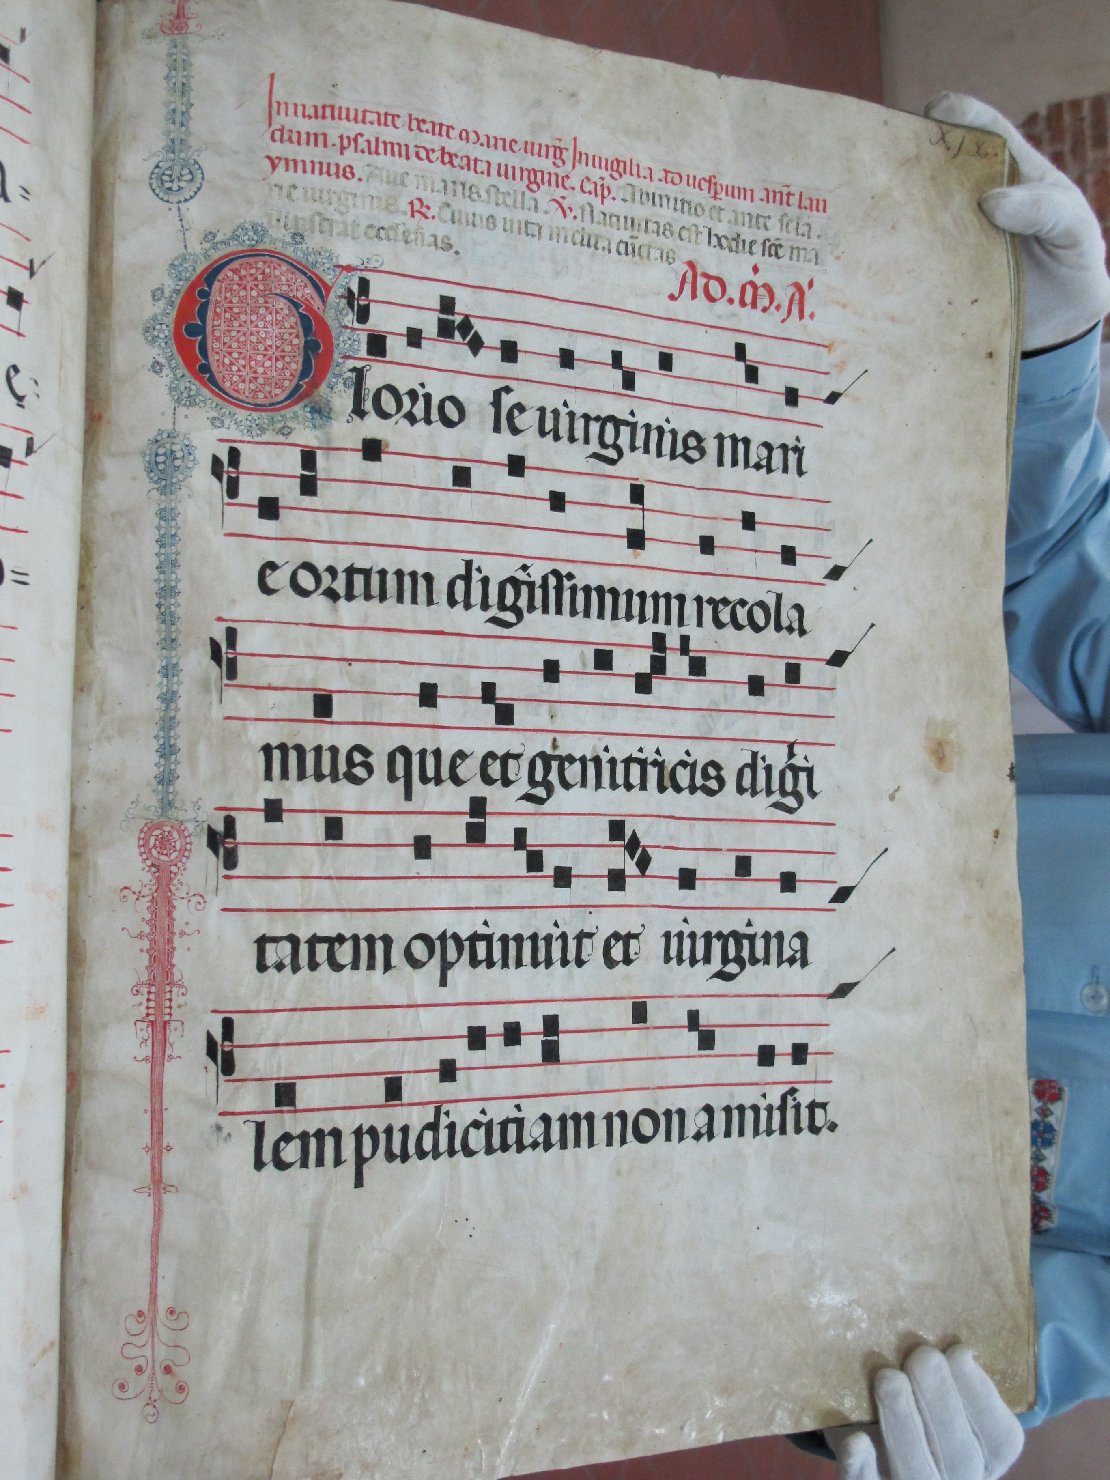 In natiuitate beate Marie uirg̃ In uigilia ad uesp̱um ant̃ lau
dum. psalmi de beata uirgine. Cap̃. Ab initio et ante sc̃la.
ymnus. Aue maris stella. V̇. Natiuitas est hodie sc̃e ma
rie uirginis. R. Cuius uita inclita cũctas
illustrat ecclesias.
AD. M̃. A᷎.
Glorio se uirginis mari
e ortum dig̃issimum recola
mus que et genitricis dig̃i
tatem optinuit et uirgina
lem pudicitiam non amisit.